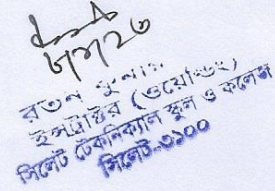 ৮/৭/২৩
রতন কুমার
ইন্সট্রাক্টর (ওয়েল্ডিং)
সিলেট টেকনিক্যাল স্কুল ও কলেজ
সিলেট-৩১০০